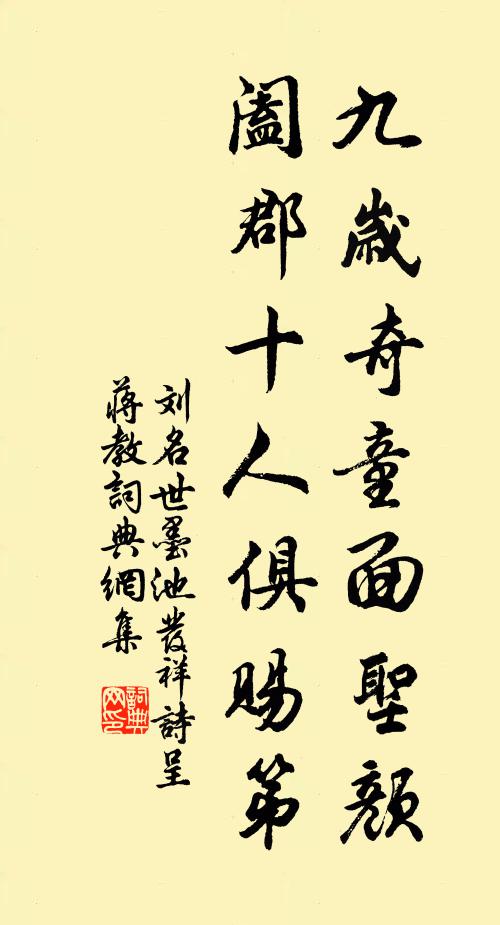 九歲奇童面聖顏
闔郡十人俱賜第
刘名世墨池發祥詩呈
蔣教詞典網集
詞典
网印